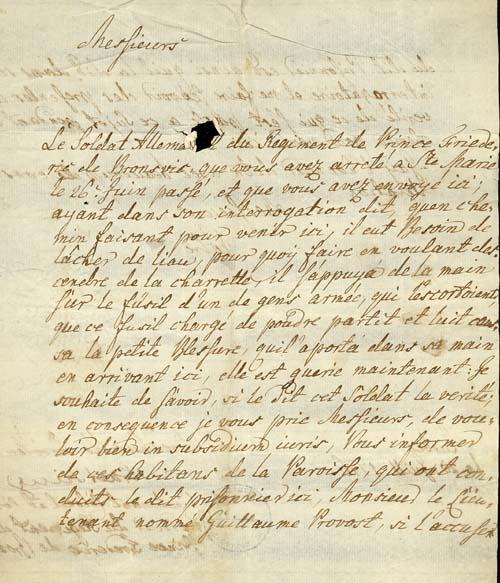 Messieurs
Le Soldat Allema du Regiment de Prince Friede,
ric de Bronsvic que vous avez arreté a Ste Marie
le 26 Juin passé, et que vous avez envoyé ici,
ayant dans son interrogation dit, quen che-
min faisant pour venir ici, il eut Besoin de
lacher de liau, pour quoÿ faire en voulant des-
cendre de la charrette, il s'appuya de la main
sur le fusil d'un de gens armée, qui l'escortoient
que ce fusil chargé de poudre partit et luit cau
sa la petite Blessure, quil'aporta dans sa main
en arrivant ici, elle est guerie maintenant: Je
souhaite de savoir, si le dit cet Soldat la verité;
en consequence je vous prie Messieurs, de vou-
loir bien in subsidium iuris, Vous informer
de ces habitans de la Paroisse, qui ont con-
duits le dit prisonnier ici, Monsieur le Lieu-
tenant nommé Guillaume Provost, si l'accuser